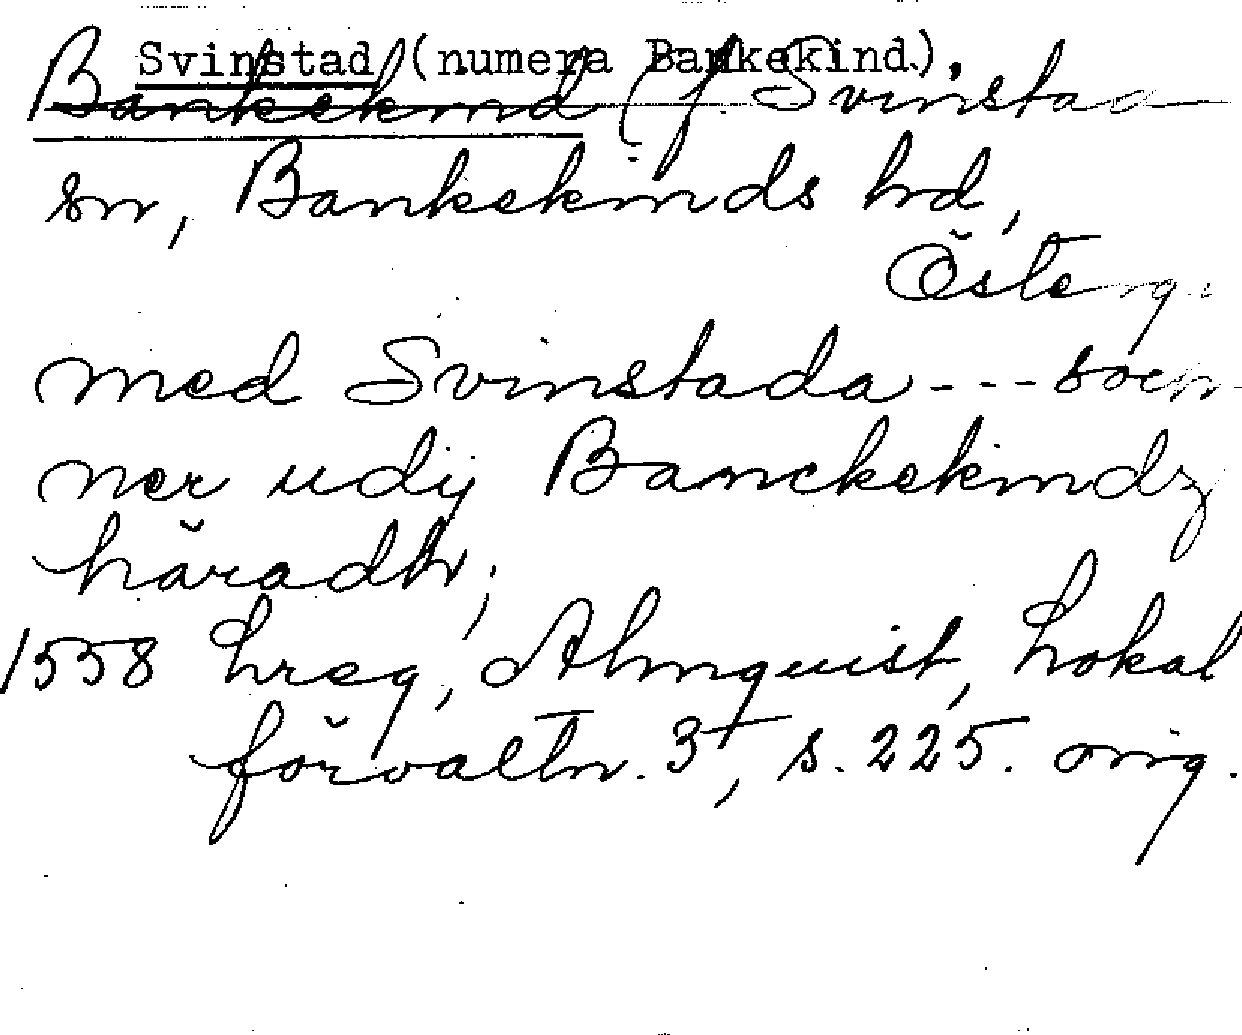 Svinstad (numera Bankekind),
Bankekind (f. Svinstad
sn, Bankekinds hd,
Österg.
med Svinstada --- soch-
ner udij Banckekindz
häradh;
1558 hreg, Almquist, Lokal
förvaltn. 3, s. 225. orig.